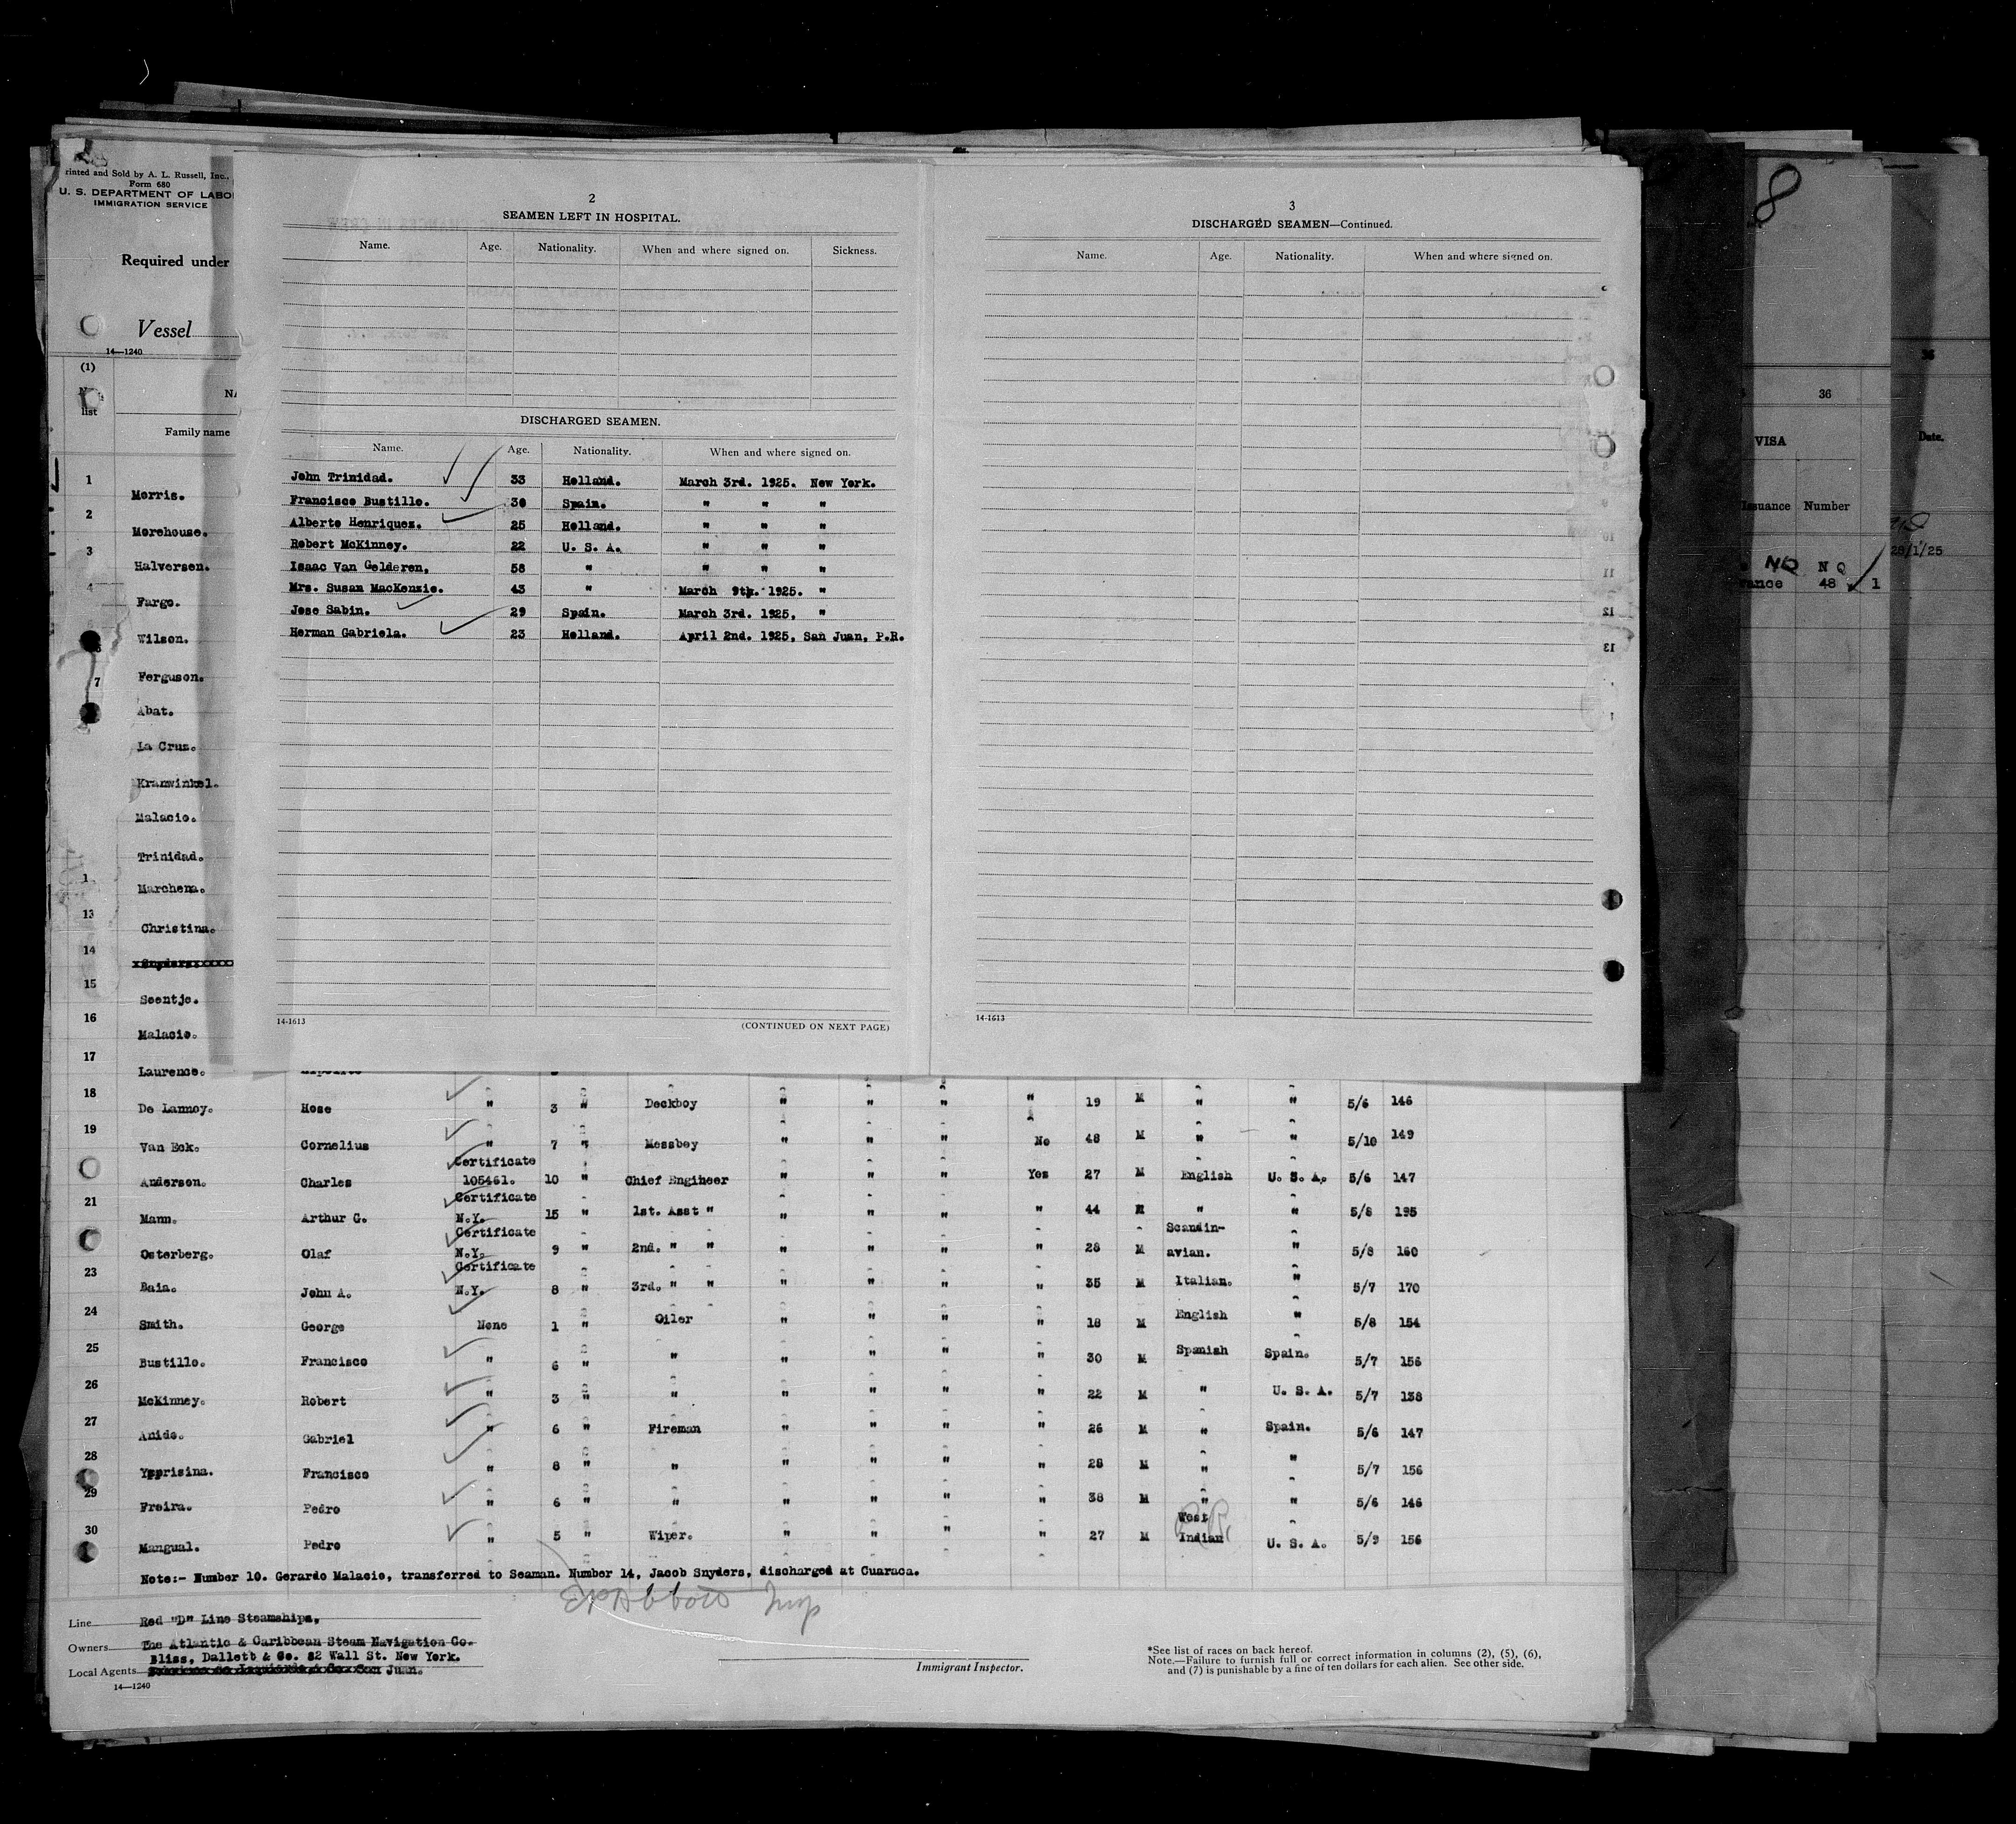 rinted and Sold by A. L. Russell, Inc.,
Form 680
U. S. DEPARTMENT OF LABO
IMMIGRATION SERVICE
Required under
Vessel
14—1240
(1)
list
Family name
2
SEAMEN LEFT IN HOSPITAL.
Name. Age. Nationality. When and where signed on. Sickness.
DISCHARGED SEAMEN.
Name. Age. Nationality. When and where signed on.
John Trinidad. 33 Holland. March 3rd. 1925. New York.
Francisco Bustillo. 30 Spain. " " "
Alberto Henriquez. 25 Holland. " " "
Robert McKinney. 22 U. S. A. " " "
Isaac Van Gelderen. 58 " " " "
Mrs. Susan MacKenzie. 43 " March 9th. 1925. "
Jose Sabin. 29 Spain. March 3rd. 1925, "
Herman Gabriela. 23 Holland. April 2nd. 1925, San Juan, P.R.
14-1613
(CONTINUED ON NEXT PAGE)
3
DISCHARGED SEAMEN—Continued.
Name. Age. Nationality. When and where signed on.
14-1613
8
36
VISA
Issuance Number
NQ N Q
rance 48 1
36
Date.
28/1/25
1 Morris.
2 Morehouse.
3 Halversen.
4 Fargo.
Wilson.
7 Ferguson.
Abat.
La Cruz.
Kranwinkel.
Malacio.
Trinidad.
1 Marchena.
13 Christina.
14 Snyders
15 Soentjo.
16 Malacio.
17 Laurence.
18 De Lannoy. Hose " 3 " Deckboy " " " " 19 M " " 5/6 146
19 Van Eck. Cornelius " 7 " Messboy " " " No 48 M " " 5/10 149
Anderson. Charles Certificate 105461. 10 " Chief Engineer " " " Yes 27 M English U. S. A. 5/6 147
21 Mann. Arthur G. Certificate N.Y. 15 " 1st. Asst " " " " " 44 M " " 5/8 195
Osterberg. Olaf Certificate N.Y. 9 " 2nd. " " " " " " 28 M Scandin-avian. " 5/8 160
23 Baia. John A. Certificate N.Y. 8 " 3rd. " " " " " " 35 M Italian. " 5/7 170
24 Smith. George None 1 " Oiler " " " " 18 M English " 5/8 154
25 Bustillo. Francisco " 6 " " " " " " 30 M Spanish Spain. 5/7 156
26 McKinney. Robert " 3 " " " " " " 22 M " U. S. A. 5/7 138
27 Anido. Gabriel " 6 " Fireman " " " " 26 M " Spain. 5/6 147
28 Ypprisina. Francisco " 8 " " " " " " 28 M " " 5/7 156
29 Freira. Pedro " 6 " " " " " " 38 M " " 5/6 146
30 Mangual. Pedro " 5 " Wiper. " " " " 27 M West Indian U. S. A. 5/9 156
Note:- Number 10. Gerardo Malacio, transferred to Seaman. Number 14, Jacob Snyders, discharged at Cuaraca.
Line Red "D" Line Steamships.
Owners The Atlantic & Caribbean Steam Navigation Co.
Bliss, Dallett & Co. 82 Wall St. New York.
Local Agents Juan.
14—1240
Immigrant Inspector.
*See list of races on back hereof.
Note.—Failure to furnish full or correct information in columns (2), (5), (6),
and (7) is punishable by a fine of ten dollars for each alien. See other side.